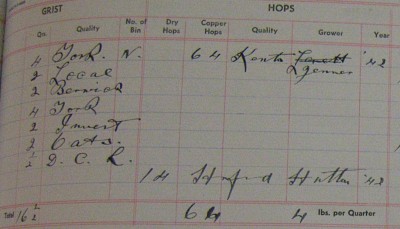 GRIST HOPS
Qu. Quality No. of Bin Dry Hops Copper Hops Quality Grower Year
4 York. N. 64 Kents '42
2 Local
2 Berwick
4 York
2 Invert
2 Oats.
1/2 D. C. L.
14 '42
Total 16 1/2 64 4 lbs. per Quarter